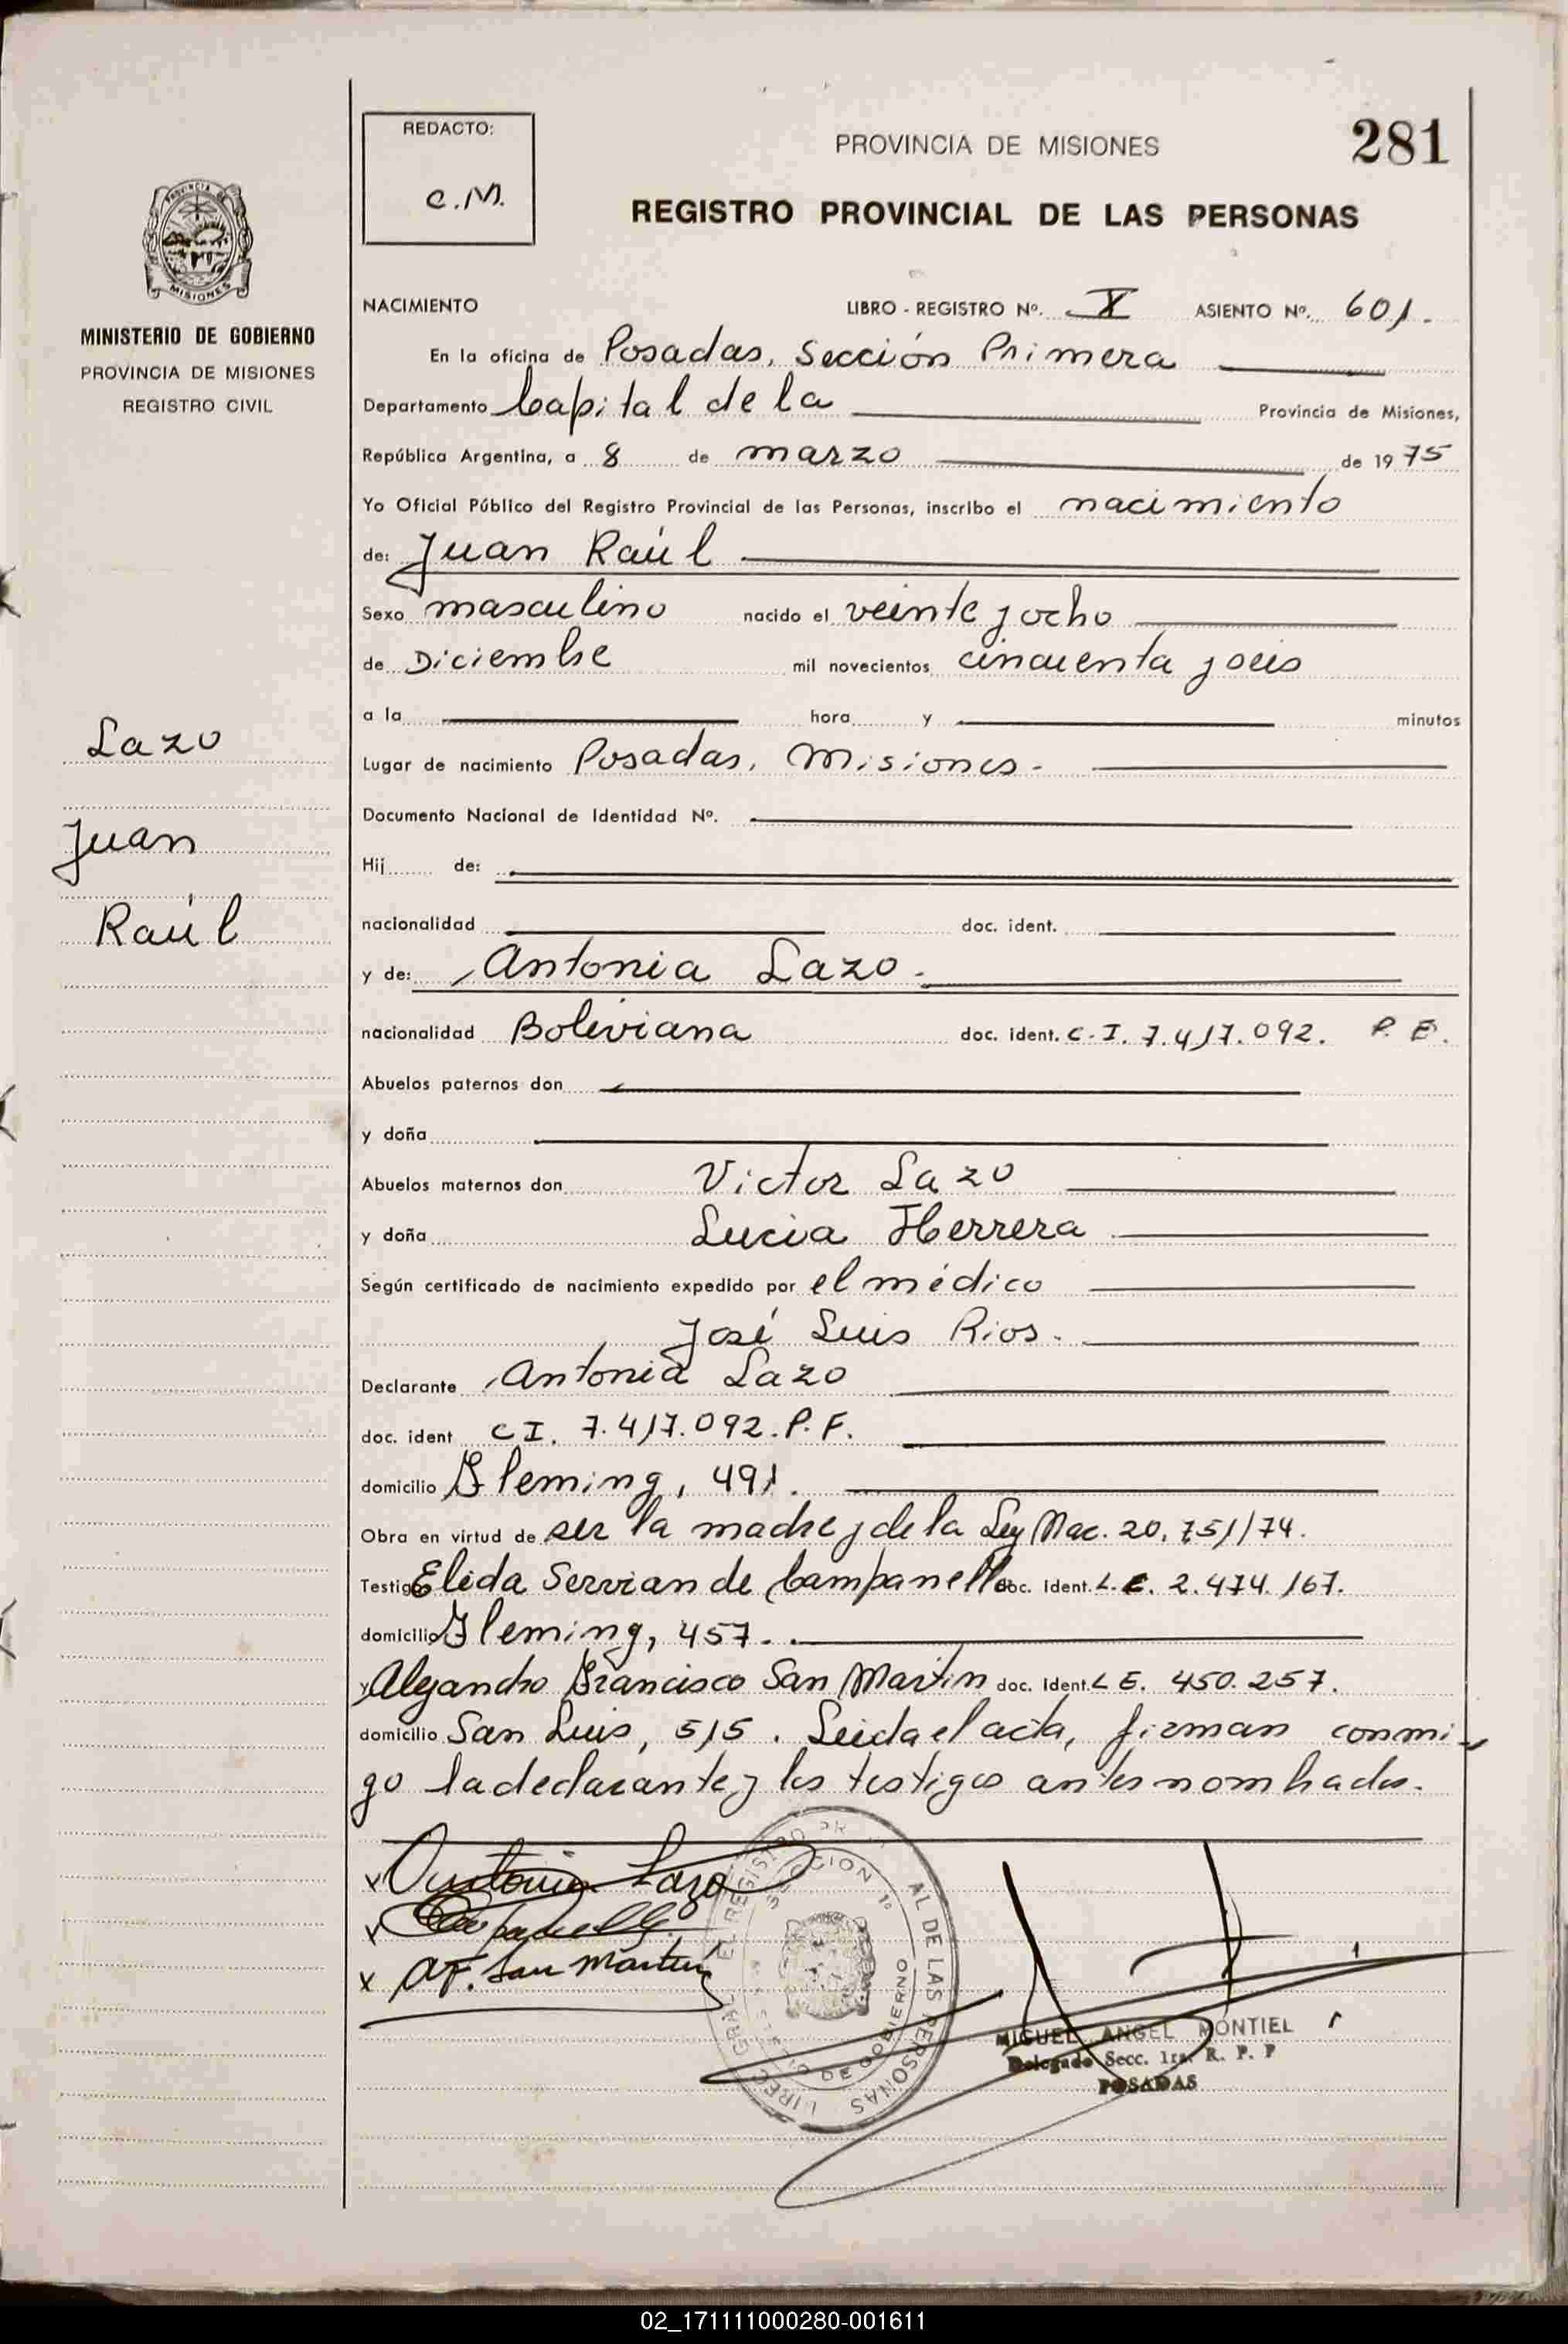 REDACTO:
C.M.
PROVINCIA DE MISIONES
281
REGISTRO PROVINCIAL DE LAS PERSONAS
MINISTERIO DE GOBIERNO
PROVINCIA DE MISIONES
REGISTRO CIVIL
NACIMIENTO LIBRO - REGISTRO Nº. X ASIENTO Nº. 601.
En la oficina de Posadas, Sección Primera
Departamento Capital de la Provincia de Misiones,
República Argentina, a 8 de marzo de 1975
Yo Oficial Público del Registro Provincial de las Personas, inscribo el nacimiento
de: Juan Raúl
Sexo masculino nacido el veinte y ocho
de Diciembre mil novecientos cincuenta y seis
a la hora y minutos
Lazo
Juan
Raúl
Lugar de nacimiento Posadas, Misiones.
Documento Nacional de Identidad Nº.
Hij de:
nacionalidad doc. ident.
y de: Antonia Lazo.
nacionalidad Boliviana doc. ident. C.I. 7.417.092. P. F.
Abuelos paternos don
y doña
Abuelos maternos don Victor Lazo
y doña Lucia Herrera
Según certificado de nacimiento expedido por el médico
José Luis Rios.
Declarante Antonia Lazo
doc. ident C I. 7.417.092. P. F.
domicilio Fleming, 491.
Obra en virtud de ser la madre y de la Ley Nac. 20.751/74.
Testigo Elida Servian de Campanello doc. ident. L. E. 2.474.167.
domicilio Fleming, 457.
y Alejandro Francisco San Martin doc. ident. L E. 450.257.
domicilio San Luis, 515. Leida el acta, firman conmi-
go la declarante y los testigos antes nombrados.
Antonia Lazo
x A F. San Martin
SECCION 1º
AL DE LAS PERSONAS
DE GOBIERNO
MIGUEL ANGEL MONTIEL
Delegado Secc. 1ra. R. P. P
POSADAS
02_171111000280-001611